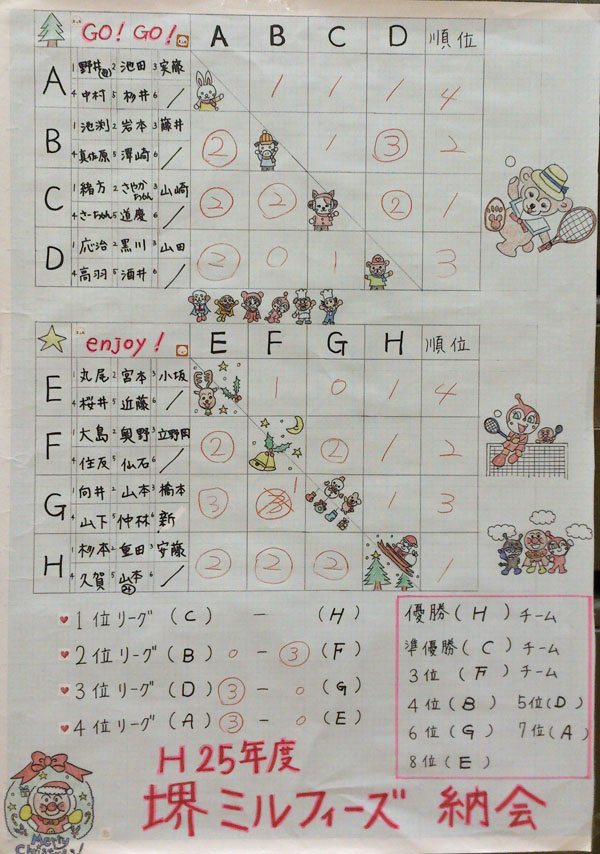 GO! GO! A B C D 順位
A 1野井 2池田 3実藤 1 1 1 4
4中村 5杉井 6/
B 1池渕 2岩本 3藤井 ② 1 ③ 2
4真佐原 5澤崎 6/
C 1緒方 2さやかちゃん 3山崎 ② ② ② 1
4さーちゃん 5道慶 6/
D 1応治 2黒川 3山田 ② 0 1 3
4高羽 5酒井 6/
enjoy! E F G H 順位
E 1丸尾 2宮本 3小坂 1 0 1 4
4桜井 5近藤 6/
F 1大島 2奥野 3立野岡 ② ② 1 2
4住友 5仙石 6/
G 1向井 2山本 3橋本 ③ 1 1 3
4山下 5仲林 6新
H 1杉本 2重田 3安藤 ② ② ② 1
4久賀 5山本 6/
♥1位リーグ (C) — (H)
♥2位リーグ (B) 0 - ③ (F)
♥3位リーグ (D) ③ - 0 (G)
♥4位リーグ (A) ③ - 0 (E)
優勝(H)チーム
準優勝(C)チーム
3位(F)チーム
4位(B) 5位(D)
6位(G) 7位(A)
8位(E)
H25年度
堺ミルフィーズ 納会
Merry
Christmas!